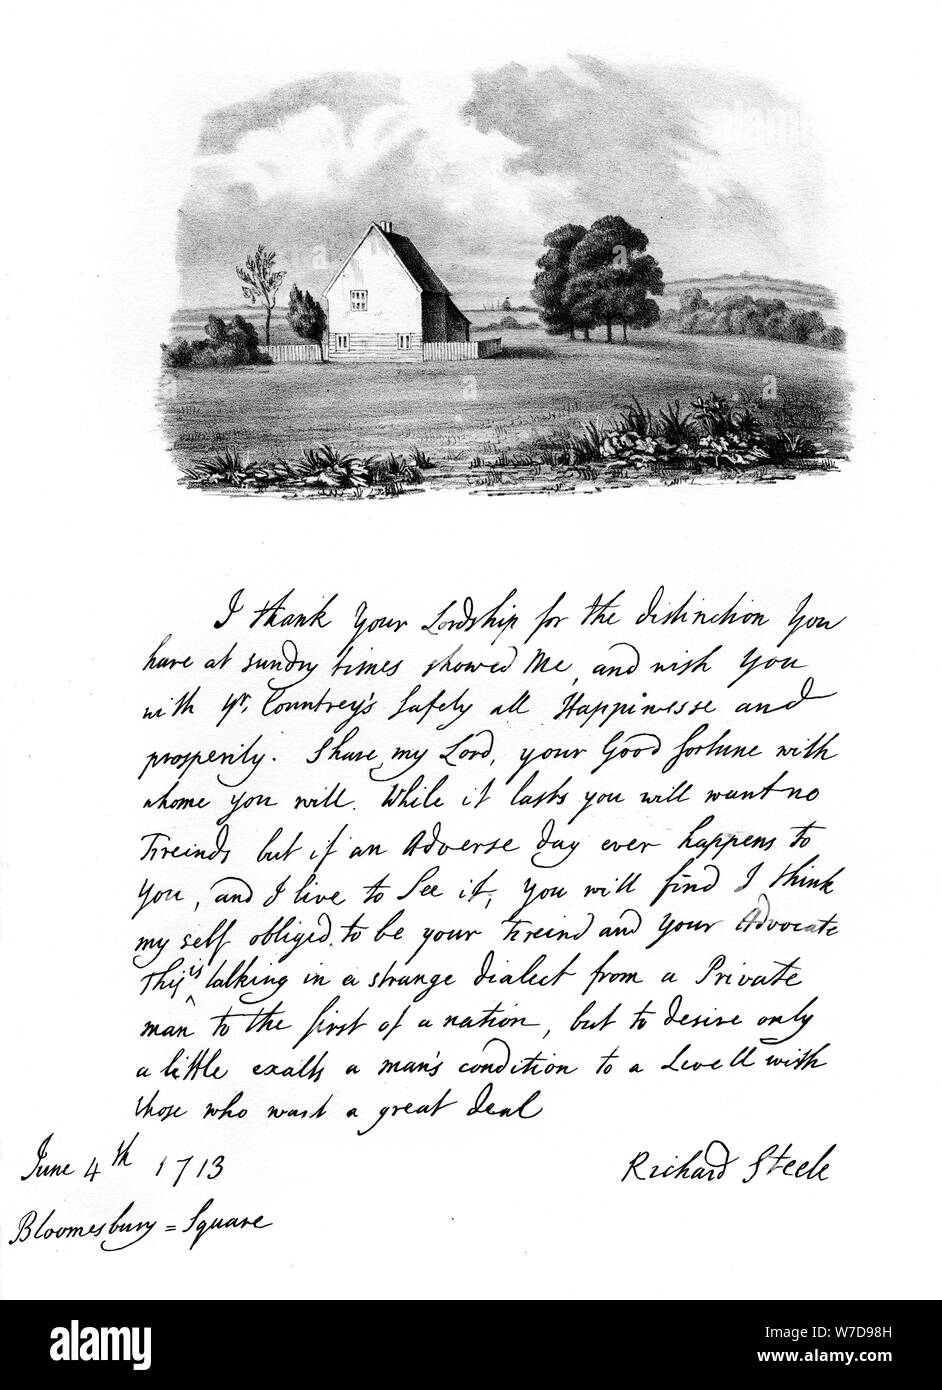 I thank Your Lordship for the distinction You
have at sundry times showed Me, and wish You
with yr. Countrey's safety all Happinesse and
prosperity. Share, my Lord, your Good fortune with
whome you will. While it lasts you will want no
Freinds but if an Adverse day ever happens to
You, and I live to See it, You will find I think
my self obliged to be your Freind and your Advocate
This is talking in a strange dialect from a Private
man to the first of a nation, but to desire only
a little exalts a man's condition to a Levell with
those who want a great deal
Richard Steele
June 4th 1713
Bloomesbury = Square
alamy
a
a
a
a
a
alamy
Image ID: W7D98H
www.alamy.com